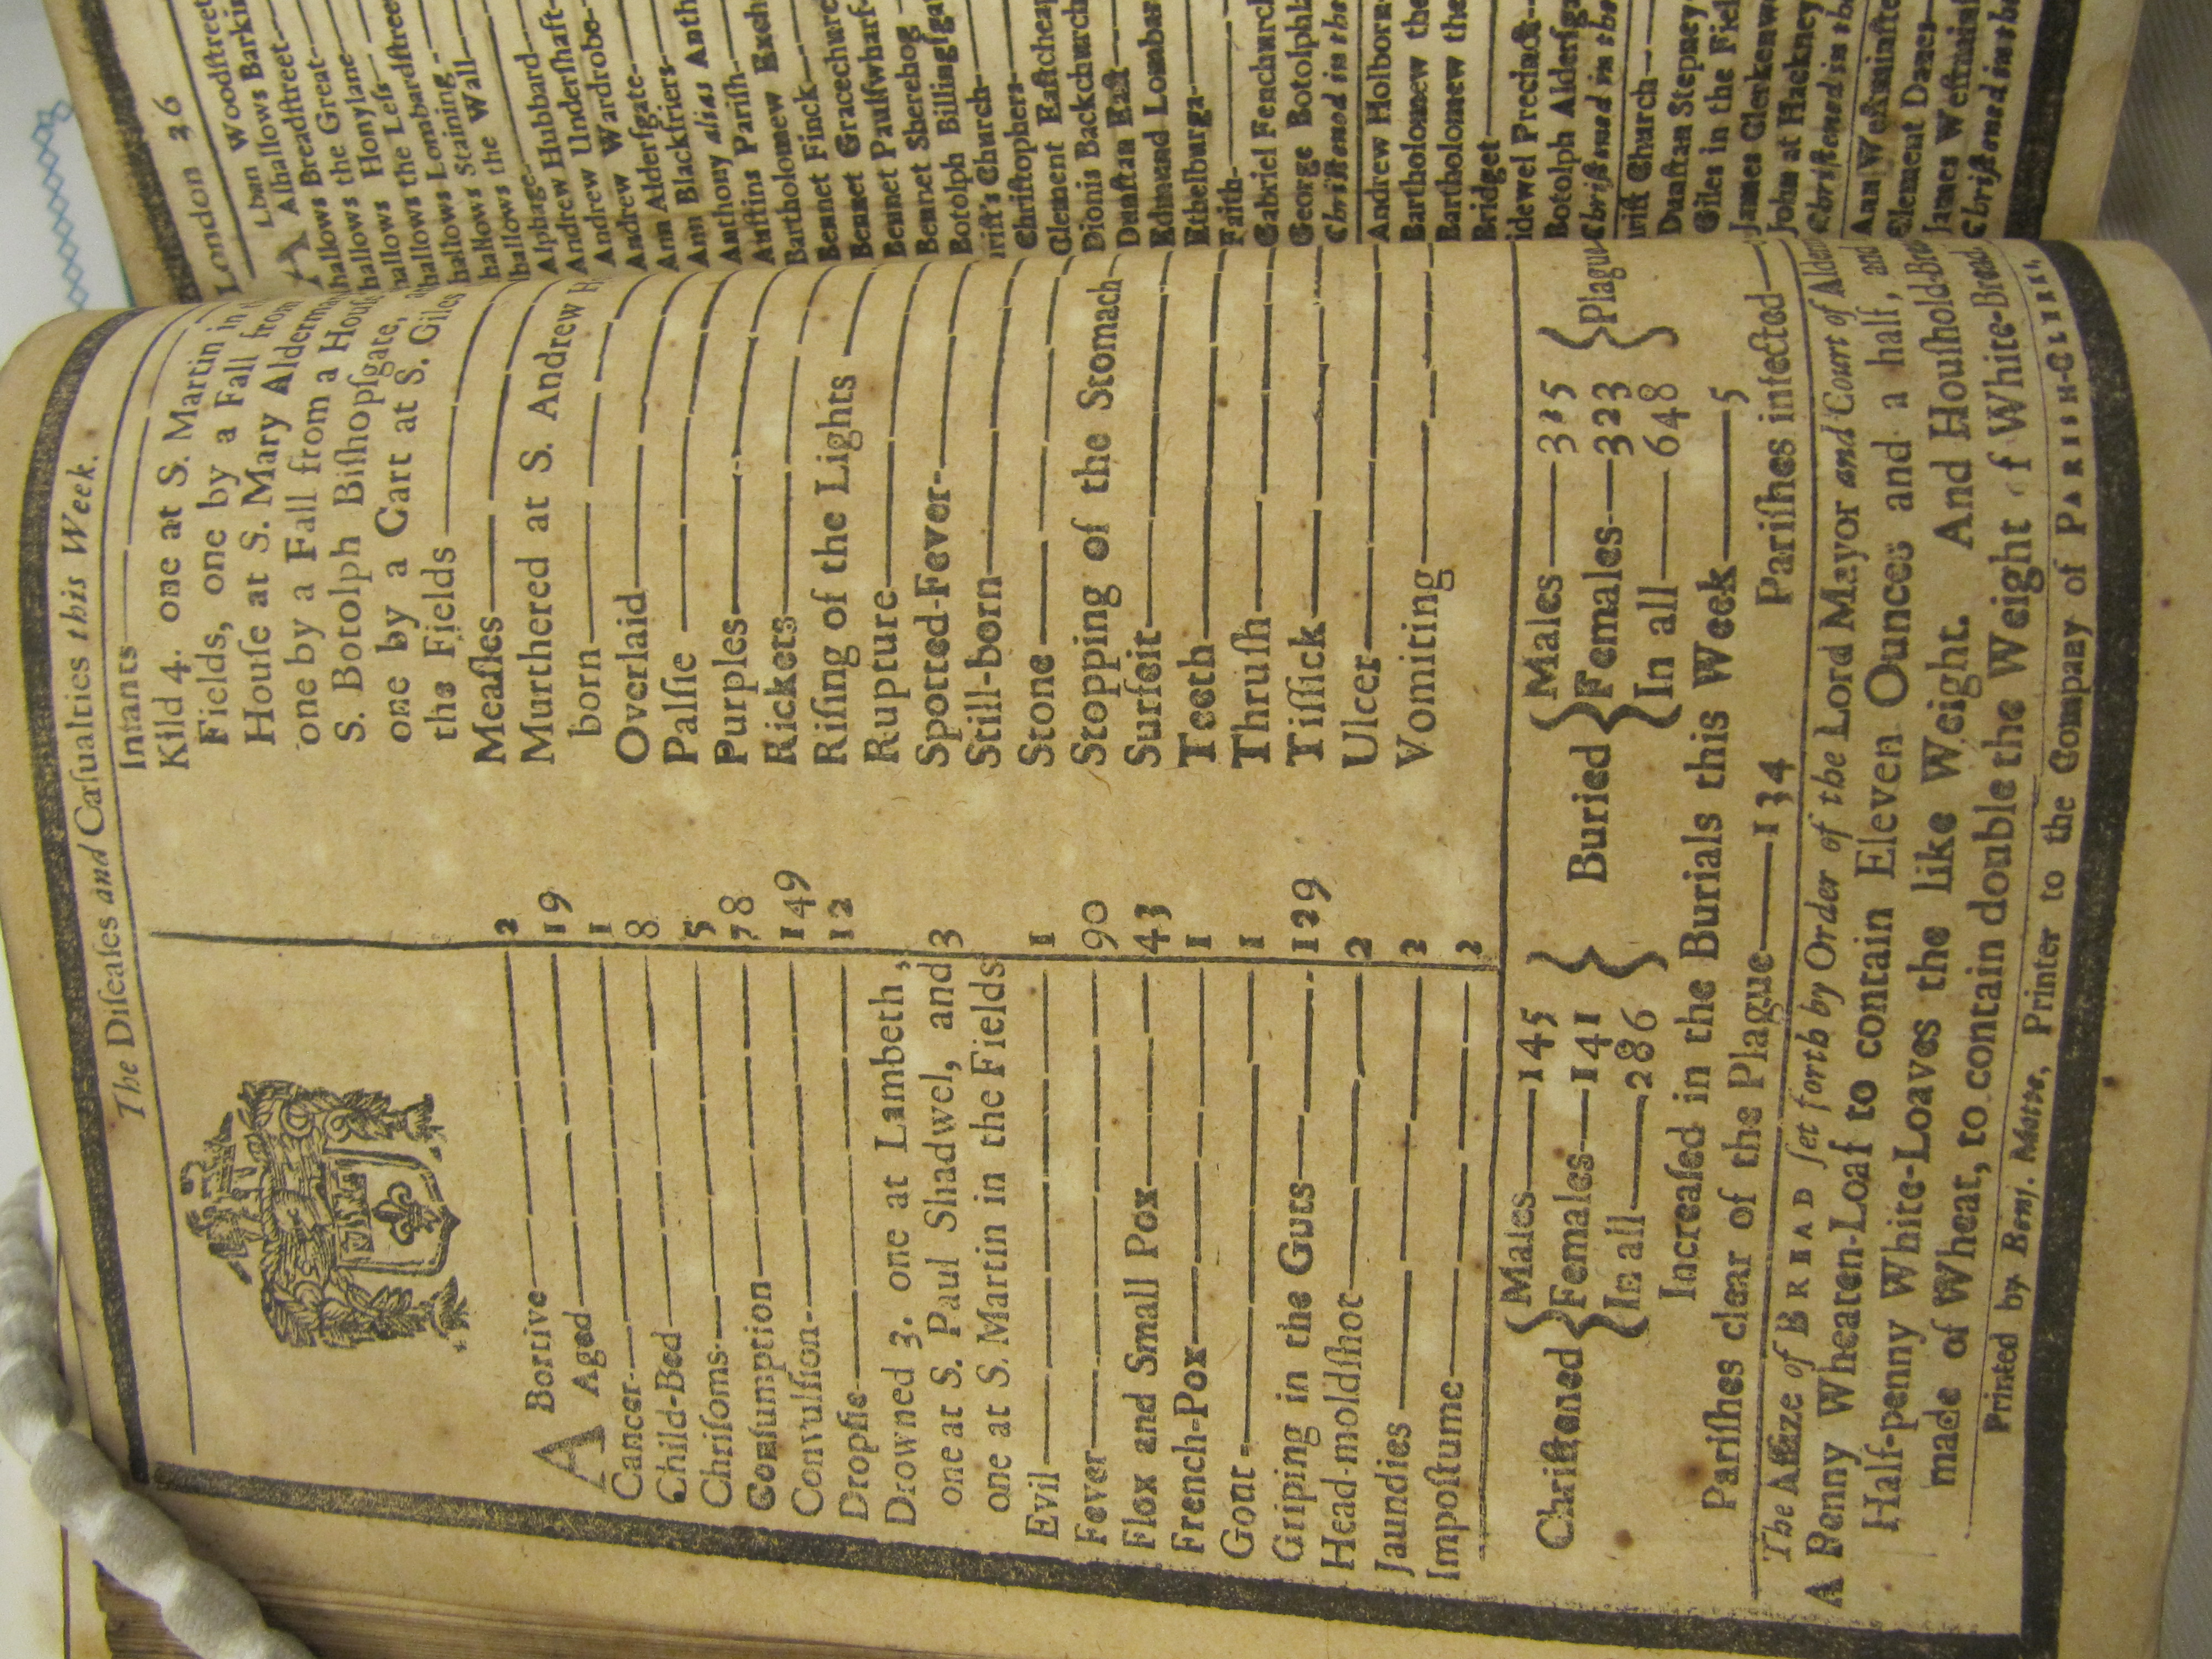 The Diſeaſes and Caſualties this Week.
A Bortive 2
Aged 19
Cancer 1
Child-Bed 8
Chriſoms 5
Conſumption 78
Convulſion 149
Dropſie 12
Drowned 3. one at Lambeth,
one at S. Paul Shadwel, and 3
one at S. Martin in the Fields
Evil 1
Fever 90
Flox and Small Pox 43
French-Pox 1
Gout 1
Griping in the Guts 129
Head-moldſhot 2
Jaundies 2
Impoſtume 2
Infants
Kild 4. one at S. Martin in
Fields, one by a Fall from
Houſe at S. Mary Alderma
one by a Fall from a Houſe
S. Botolph Biſhopſgate,
one by a Cart at S. Giles
the Fields
Meaſles
Murthered at S. Andrew H
born
Overlaid
Palſie
Purples
Rickets
Riſing of the Lights
Rupture
Spotted-Fever
Still-born
Stone
Stopping of the Stomach
Surfeit
Teeth
Thruſh
Tiſſick
Ulcer
Vomiting
Chriſtened { Males 145 Females 141 In all 286 } Buried { Males 325 Females 323 In all 648 } Plague
Increaſed in the Burials this Week 5
Pariſhes clear of the Plague 134 Pariſhes infected
The Aſſize of BREAD ſet forth by Order of the Lord Mayor and Court of Alderm
A Penny Wheaten-Loaf to contain Eleven Ounces and a half, and
Half-penny White-Loaves the like Weight. And Houſhold-Brea
made of Wheat, to contain double the Weight of White-Bread.
Printed by Benj. Motte, Printer to the Company of PARISH-CLERKS.
London 36
Lban Woodſtreet
Alhallows Barkin
hallows Breadſtreet
hallows the Great
hallows Honylane
hallows the Leſs
hallows Lombardſtreet
hallows Staining
hallows the Wall
Alphage
Andrew Hubbard
Andrew Underſhaft
Andrew Wardrobe
Ann Alderſgate
Ann Blackfriers
Anthony alias Anth
Auſtins Pariſh
Bartholomew Exch
Bennet Finck
Bennet Gracechurc
Bennet Paulſwharf
Bennet Sherehog
Botolph Billingſgat
riſt's Church
Chriſtophers
Clement Eaſtcheap
Dionis Backchurch
Dunſtan Eaſt
Edmund Lombar
Ethelburga
Faith
Gabriel Fenchurch
George Botolphl
Chriſtened in the
Andrew Holborn
Bartholomew the
Bartholomew the
Bridget
idewel Precinct
Botolph Alderſga
Chriſtned in the
riſt Church
Dunſtan Stepney
Giles in the Fiel
James Clerkenwe
John at Hackney
Chriſtened in the
Ann Weſtminſte
Clement Danes
James Weſtminſ
Chriſtened in the